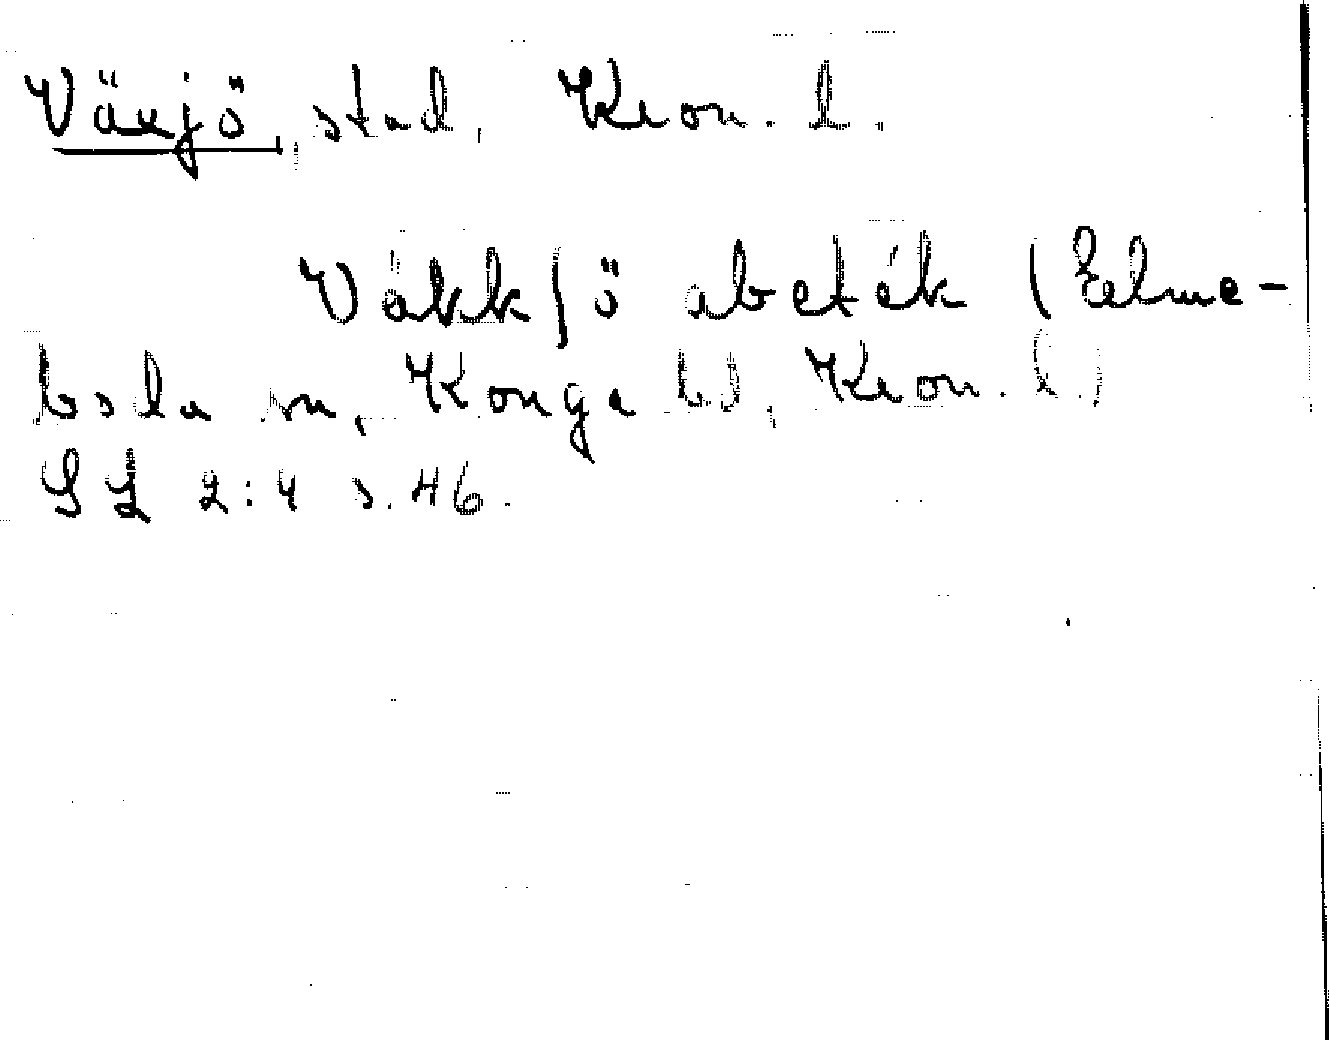 Växjö, stad, Kron. l.
Väkkʃö abeték (Elme-
boda sn, Konga hd, Kron. l.)
SL 2:4 s. 46.